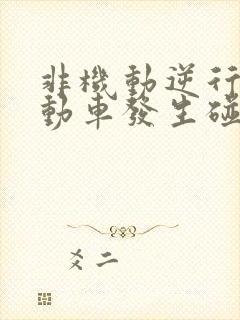 非機動逆行
動車發生碰
爻二